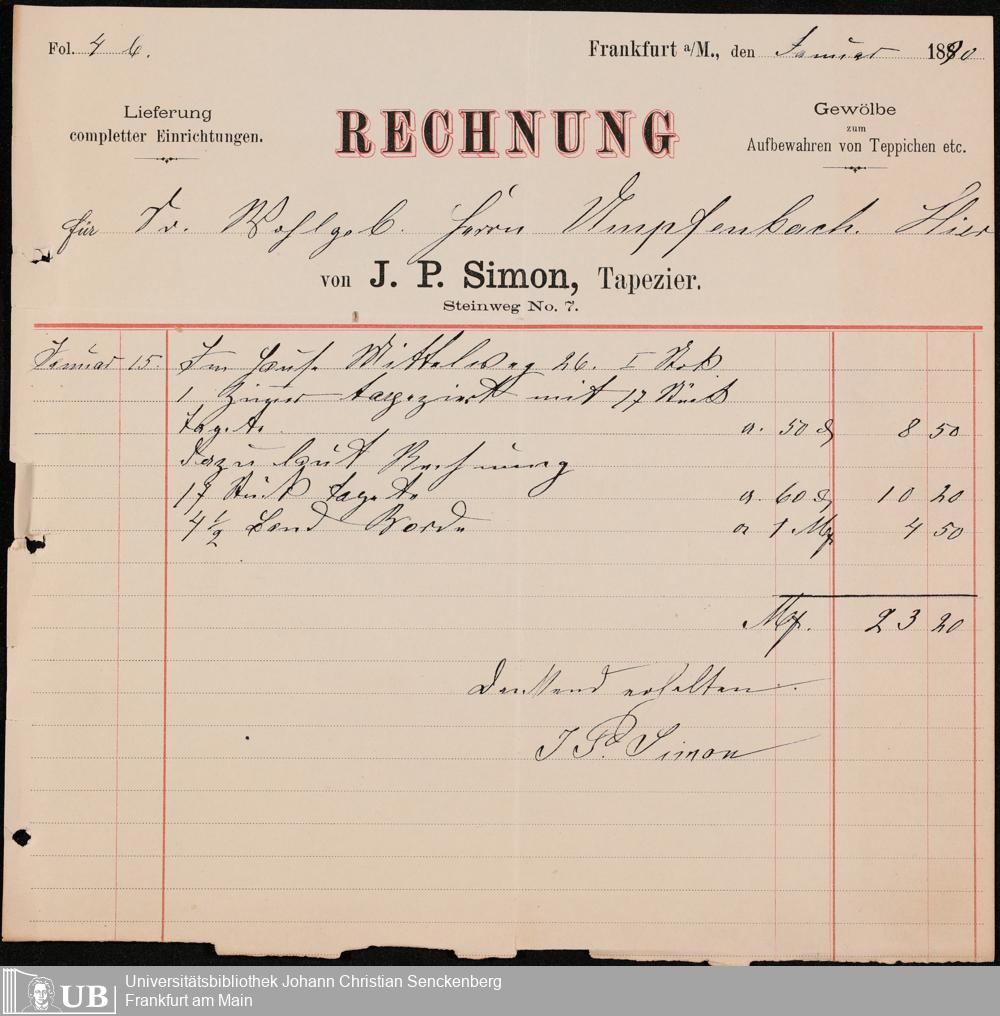 Fol. 46.
Frankfurt a/M., den Januar 1890
Lieferung
completter Einrichtungen.
RECHNUNG
Gewölbe
zum
Aufbewahren von Teppichen etc.
für Sr. Wohlgeb. Herrn Umpfenbach. Hier
von J. P. Simon, Tapezier.
Steinweg No. 7.
Januar 15. Im Hause Mittelweg 26. I Stok
1 Zimmer tapeziert mit 17 Stück
Tapete a. 50 ₰ 8 50
dazu laut Rechnung
17 Stück Tapete a. 60 ₰ 10 20
4 1/2 Borde a 1 Mk 4 50
Mk. 23 20
Dankend erhalten
J. P. Simon
UB
Universitätsbibliothek Johann Christian Senckenberg
Frankfurt am Main